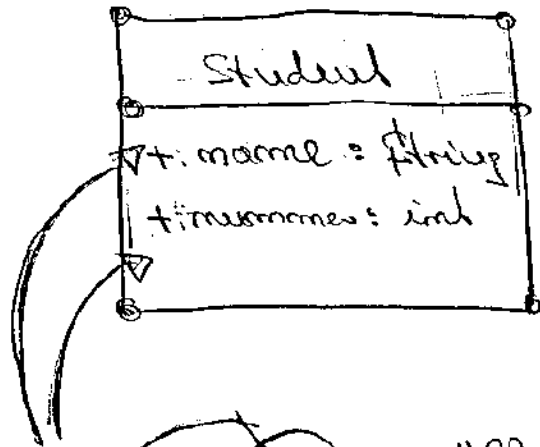 Student
+: name : String
+: nummer : int